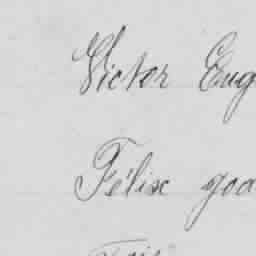 Victor Eug
Félix goo